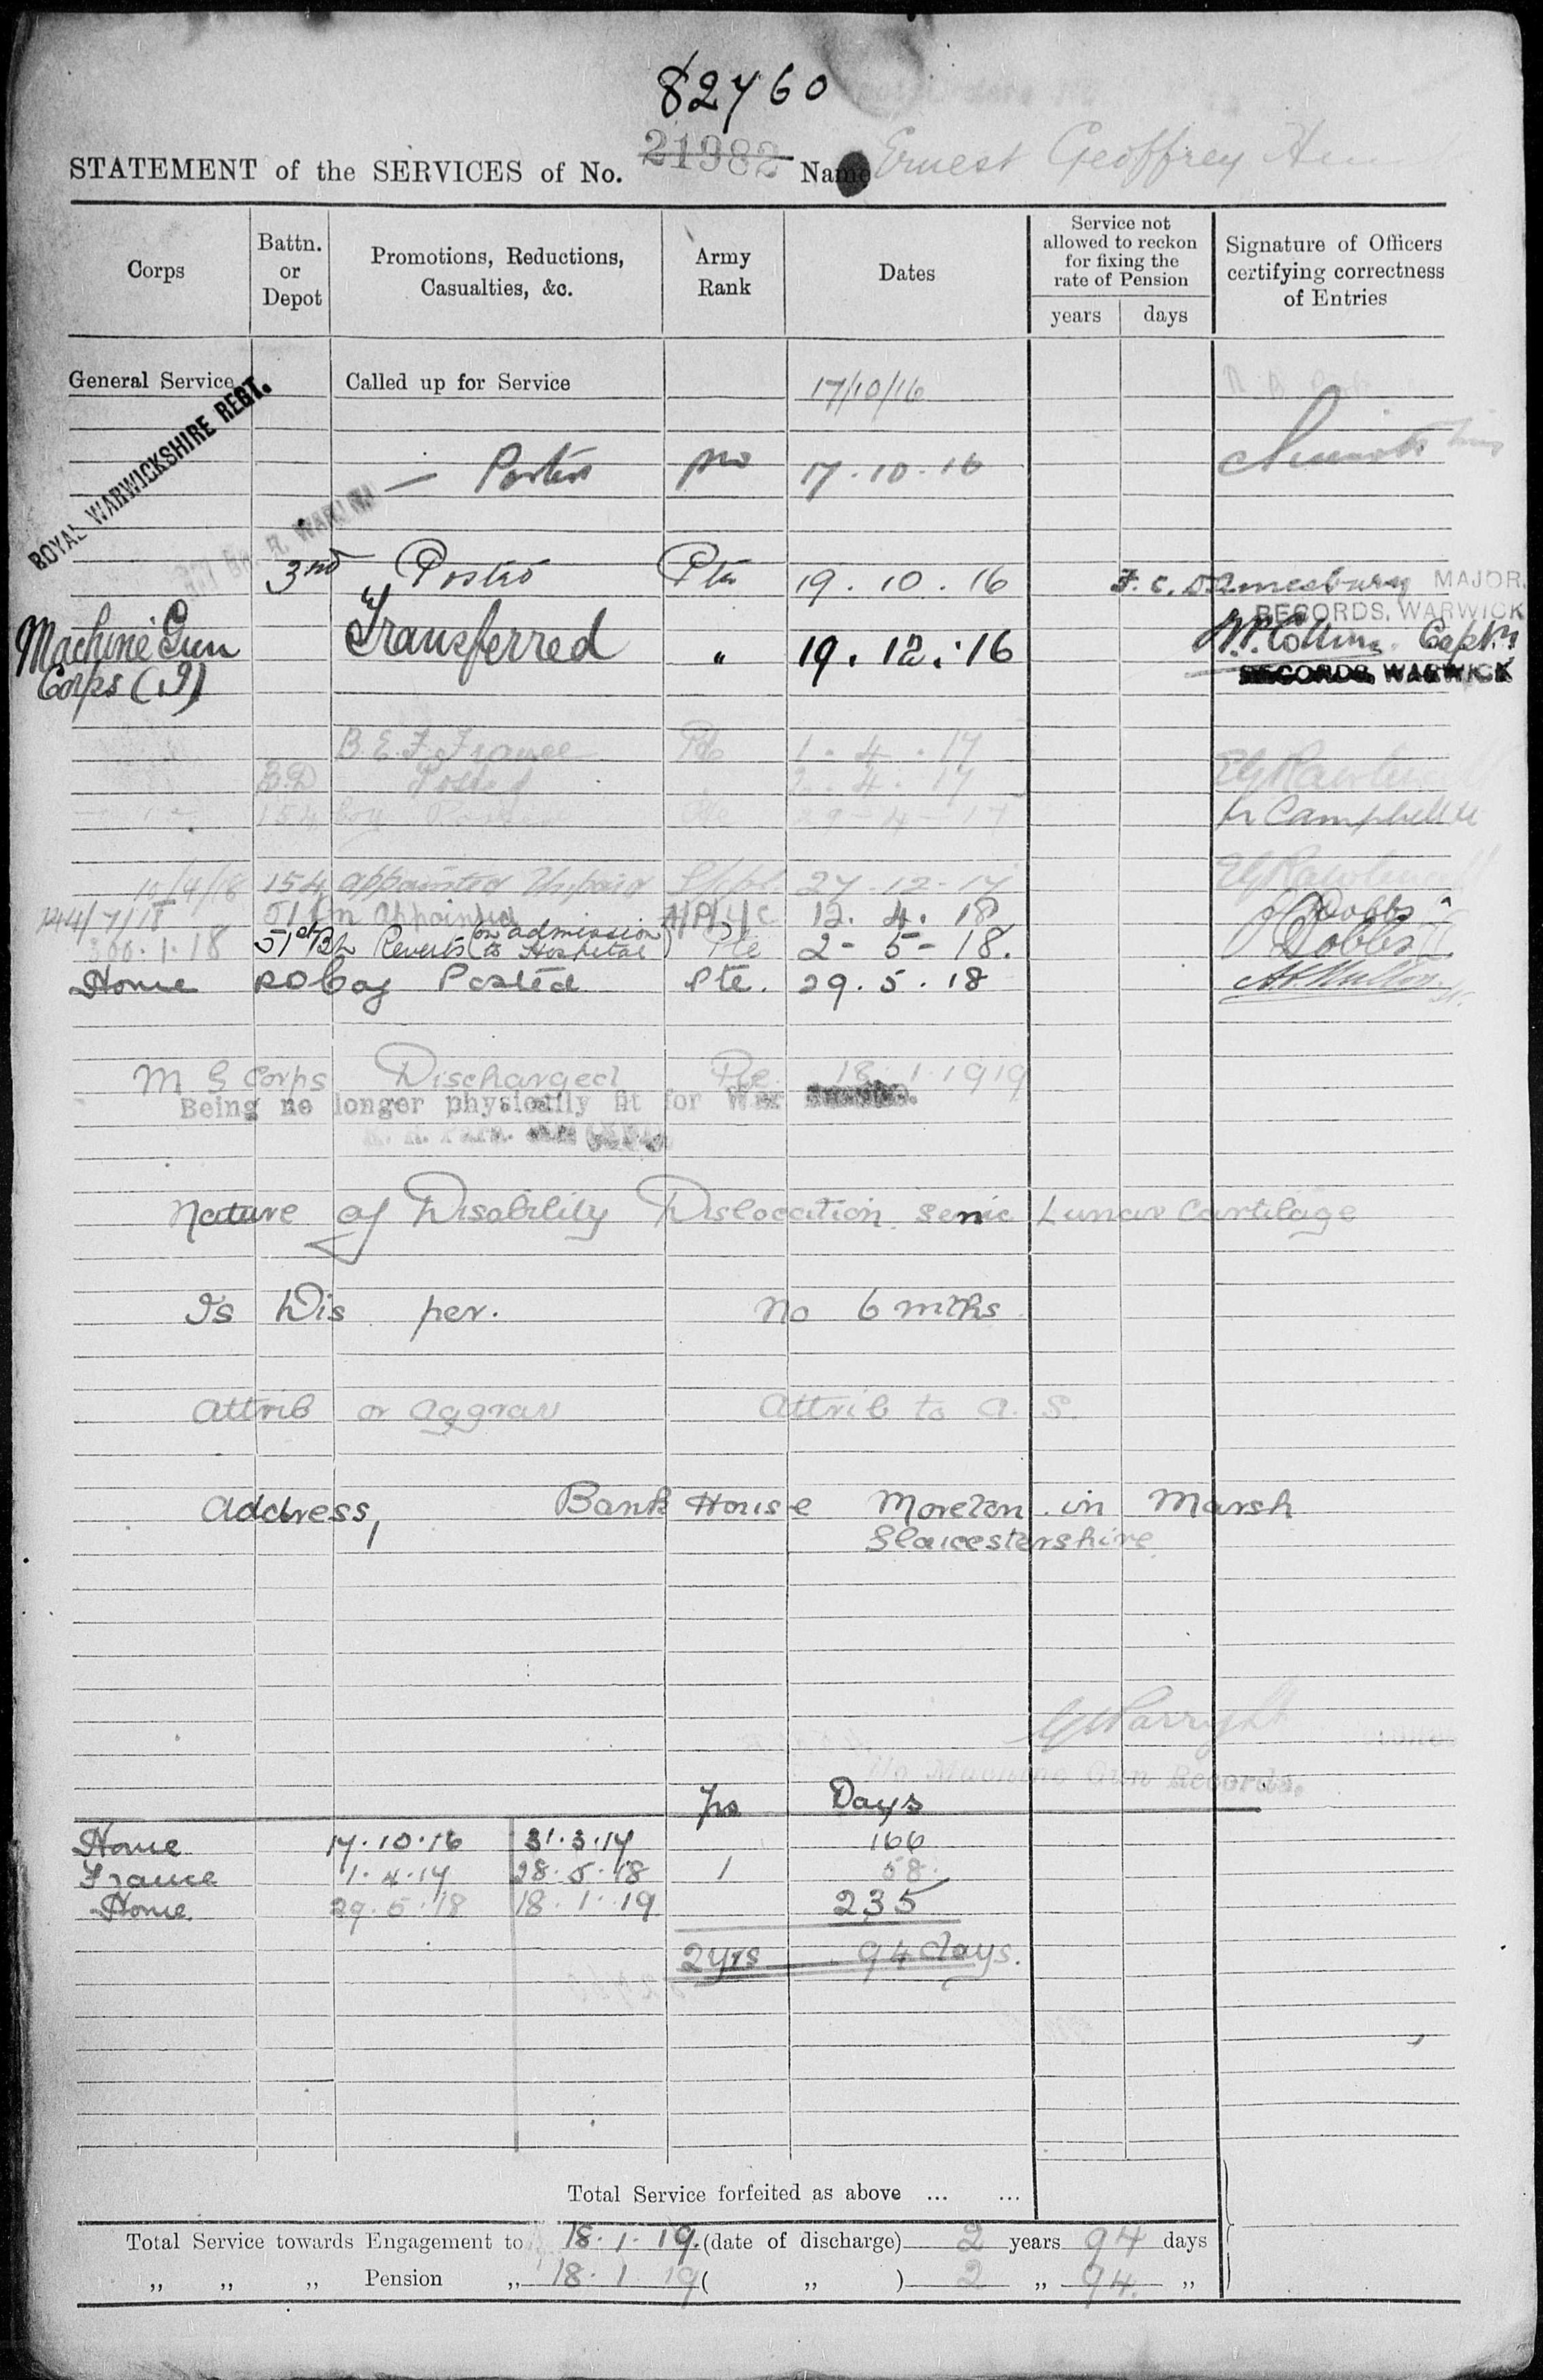 82760
STATEMENT of the SERVICES of No. 21982 Name Ernest Geoffrey
Corps
Battn. or Depot
Promotions, Reductions, Casualties, &c.
Army Rank
Dates
Service not allowed to reckon for fixing the rate of Pension
years days
Signature of Officers certifying correctness of Entries
General Service Called up for Service 17/10/16
ROYAL WARWICKSHIRE REGT.
Posted 17.10.16
3rd Posted Pte 19.10.16 F.C. Damesbury MAJOR.
RECORDS, WARWICK
Machine Gun Corps (I) Transferred " 19.12.16 Collins Capt.
RECORDS, WARWICK
B.E.F. France Pte 1.4.17
B.D Posted 2.4.17
154 Coy Posted Pte 29-4-17 Campbell Lt
10/4/18 154 appointed Unpaid 27-12-17
144/7/18 51 Bn Appointed 12.4.18 Dobbs
300.1.18 51st Bn Reverts (on admission to Hospital) Pte 2-5-18. Dobbs
Home RD Coy Posted Pte. 29.5.18
M G Corps Discharged Pte 18.1.1919
Being no longer physically fit for War
Nature of Disability Dislocation Semi Lunar Cartilage
Is Dis per. No 6 mths
Attrib or aggrav Attrib to A.S.
Address, Bank House Moreton in Marsh
Gloucestershire
Machine Gun Records.
Yrs Days
Home 17.10.16 31.3.17 166
France 1.4.17 28.5.18 1 58
Home 29.5.18 18.1.19 235
2 yrs 94 days.
Total Service forfeited as above ... ...
Total Service towards Engagement to 18.1.19. (date of discharge) 2 years 94 days
„ „ „ Pension „ 18.1.19 ( „ ) 2 „ 94. „